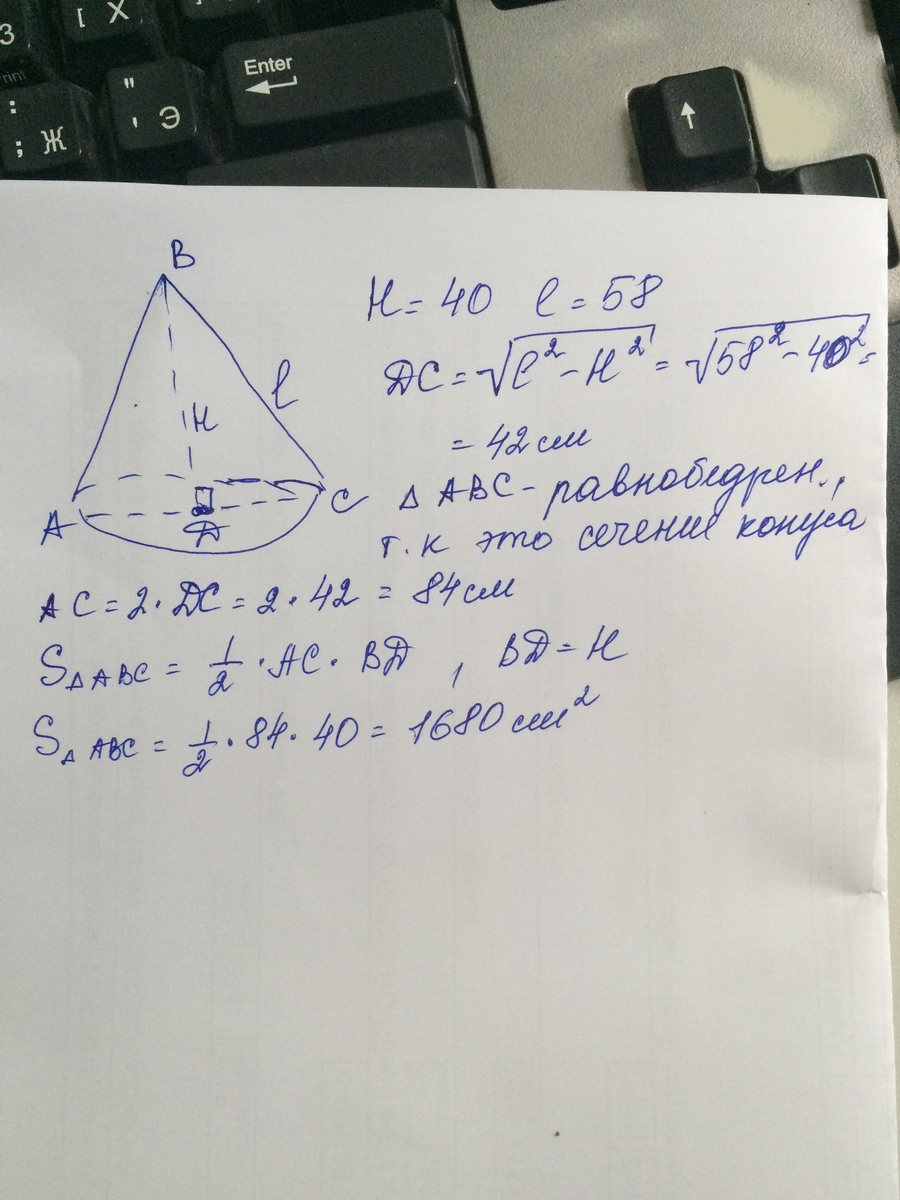 З
[ Х
Enter
: ; Ж
" ' Э
↑
B
H = 40 ℓ = 58
ℓ
DC = √ℓ² - H² = √58² - 40² =
H
= 42 см
A
D
C
△ ABC - равнобедрен.,
т.к это сечение конуса
AC = 2 · DC = 2 · 42 = 84 см
S△ABC = 1/2 · AC · BD , BD = H
S△ABC = 1/2 · 84 · 40 = 1680 см²